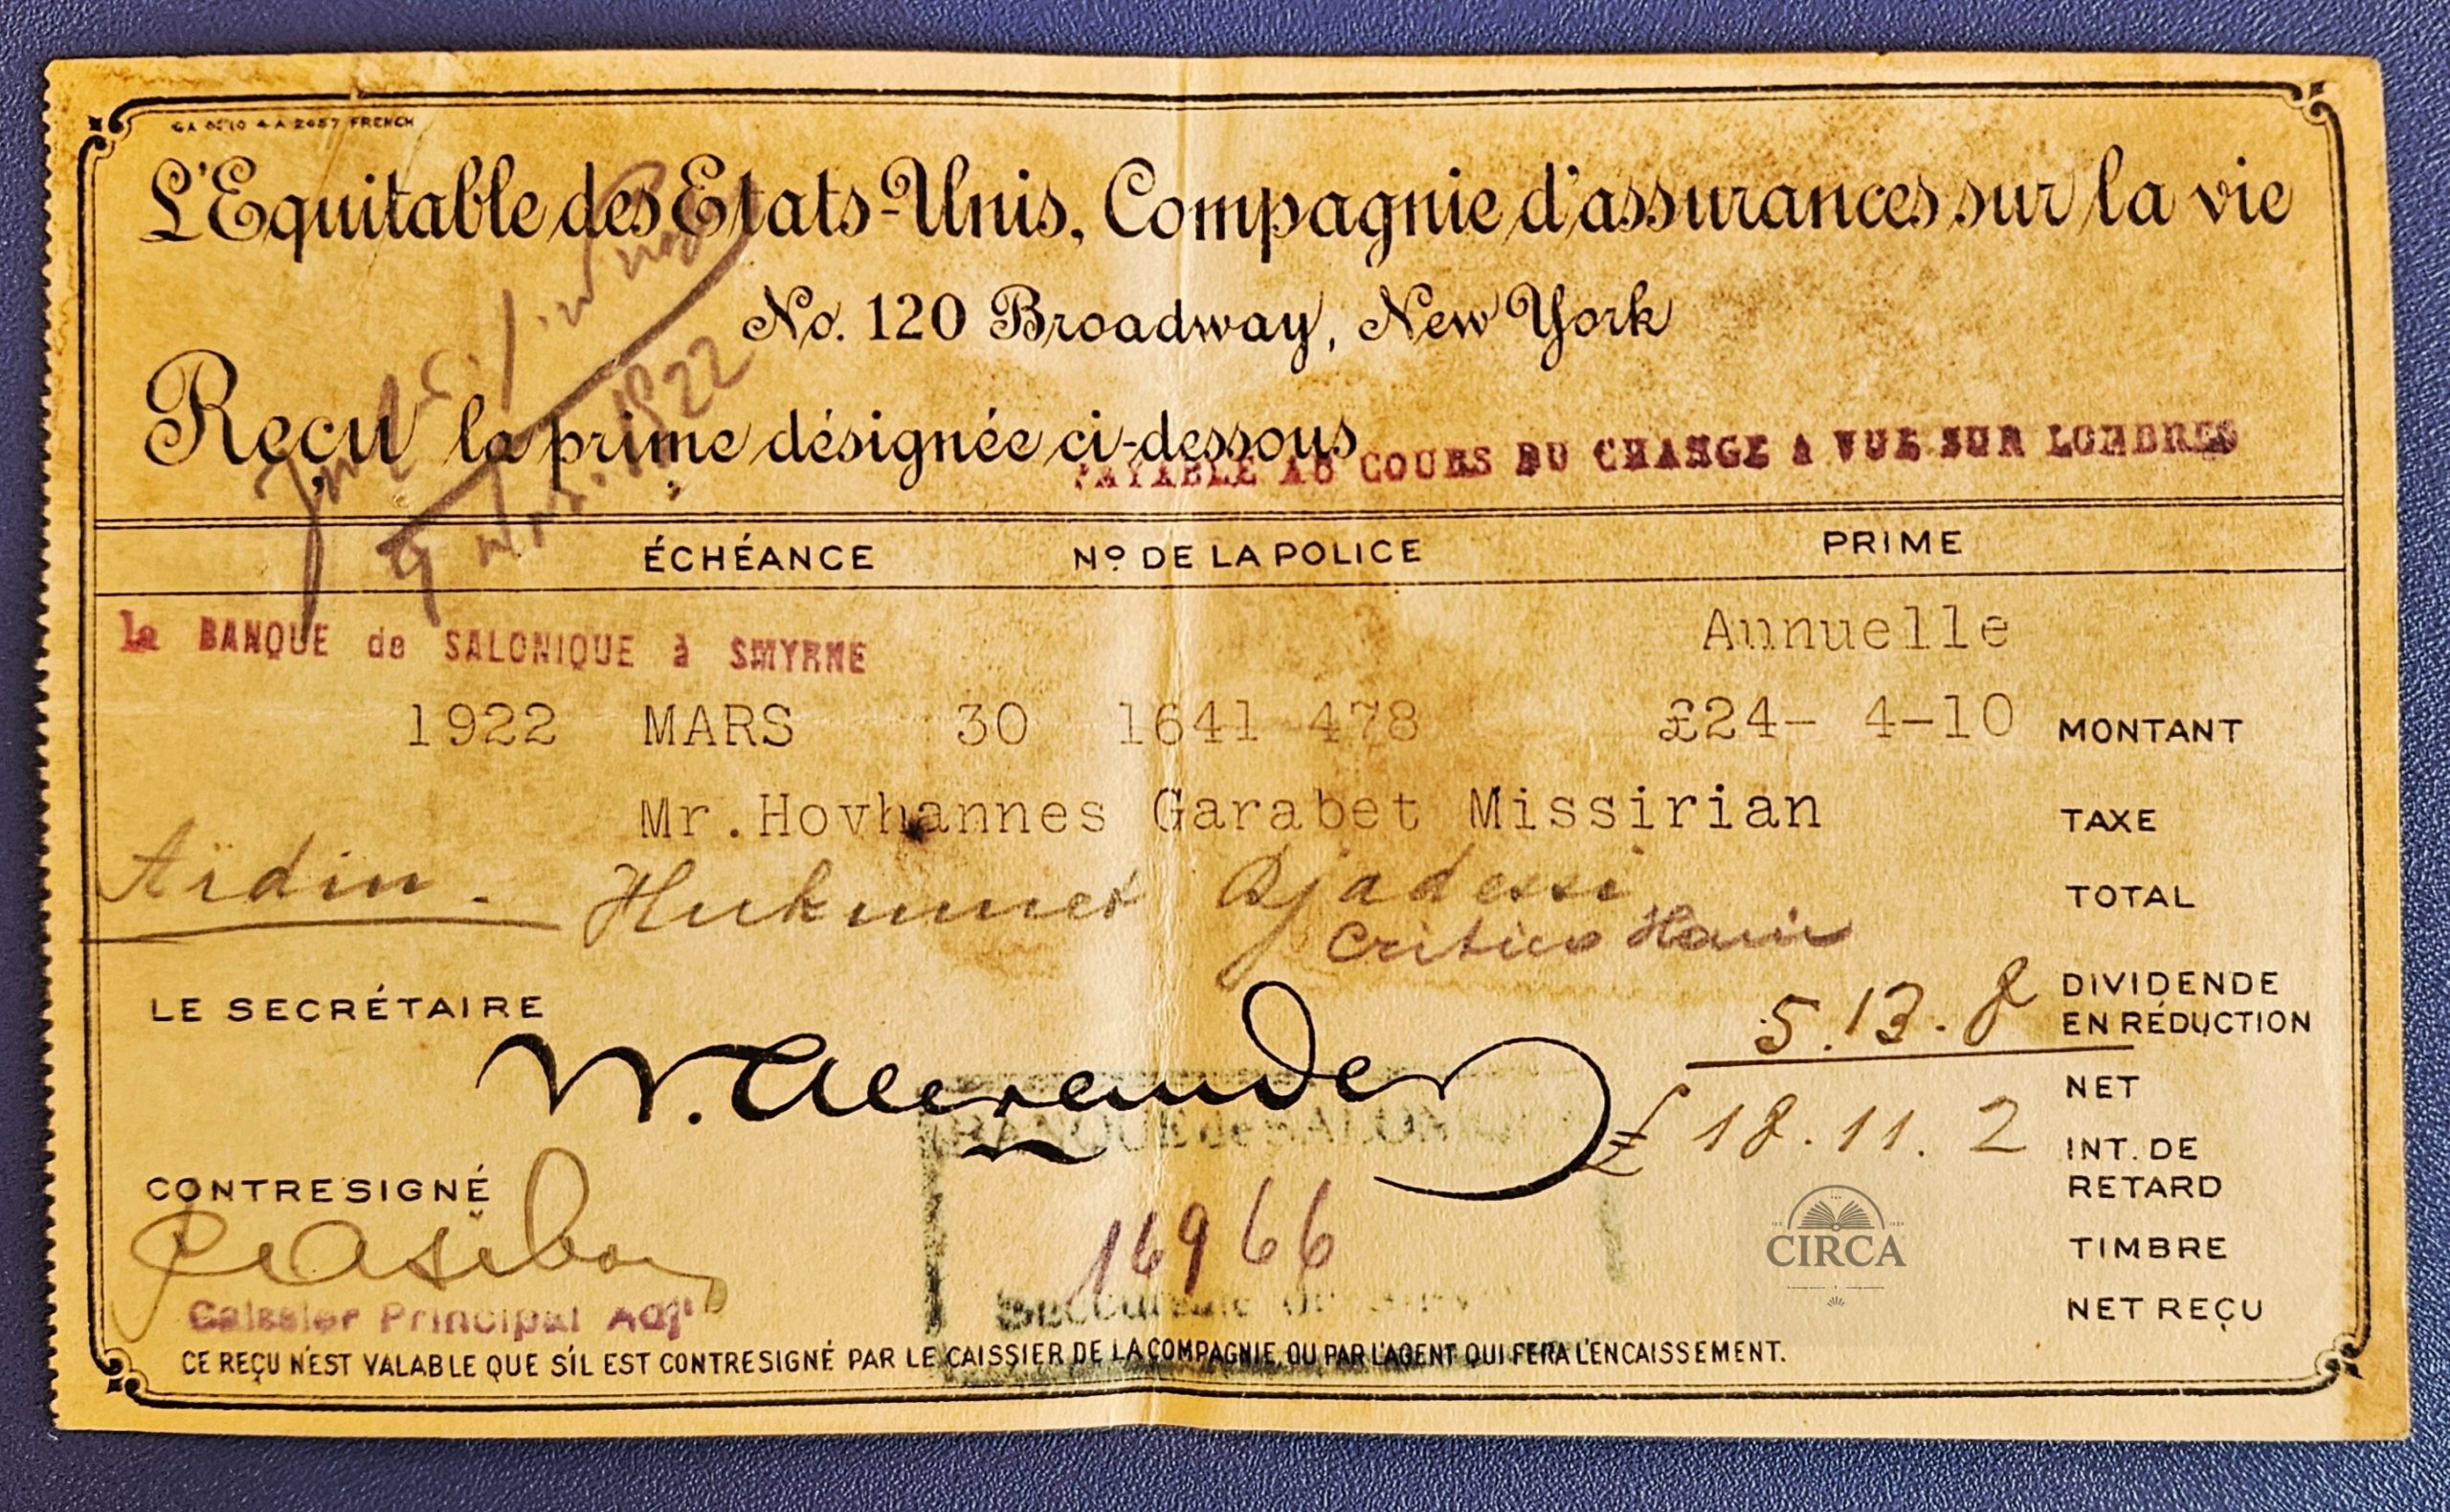 L'Equitable des Etats-Unis, Compagnie d'assurances sur la vie
No. 120 Broadway, New York
Reçu la prime désignée ci-dessous
PAYABLE AU COURS DU CHANGE A VUE SUR LONDRES
1922
ÉCHÉANCE Nº DE LA POLICE PRIME
la BANQUE de SALONIQUE à SMYRNE
Annuelle
1922 MARS 30 1641 478 £24- 4-10 MONTANT
Mr.Hovhannes Garabet Missirian TAXE
Aïdin. Hukumet Djadessi
TOTAL
LE SECRÉTAIRE
5.13.8 DIVIDENDE
EN RÉDUCTION
W. Alexander
NET
£ 18.11.2
BANQUE de SALONIQUE
INT. DE
RETARD
CONTRESIGNÉ
16966
CIRCA
TIMBRE
Caissier Principal Adjt
Succursale de
NET REÇU
CE REÇU N'EST VALABLE QUE S'IL EST CONTRESIGNÉ PAR LE CAISSIER DE LA COMPAGNIE, OU PAR L'AGENT QUI FERA L'ENCAISSEMENT.